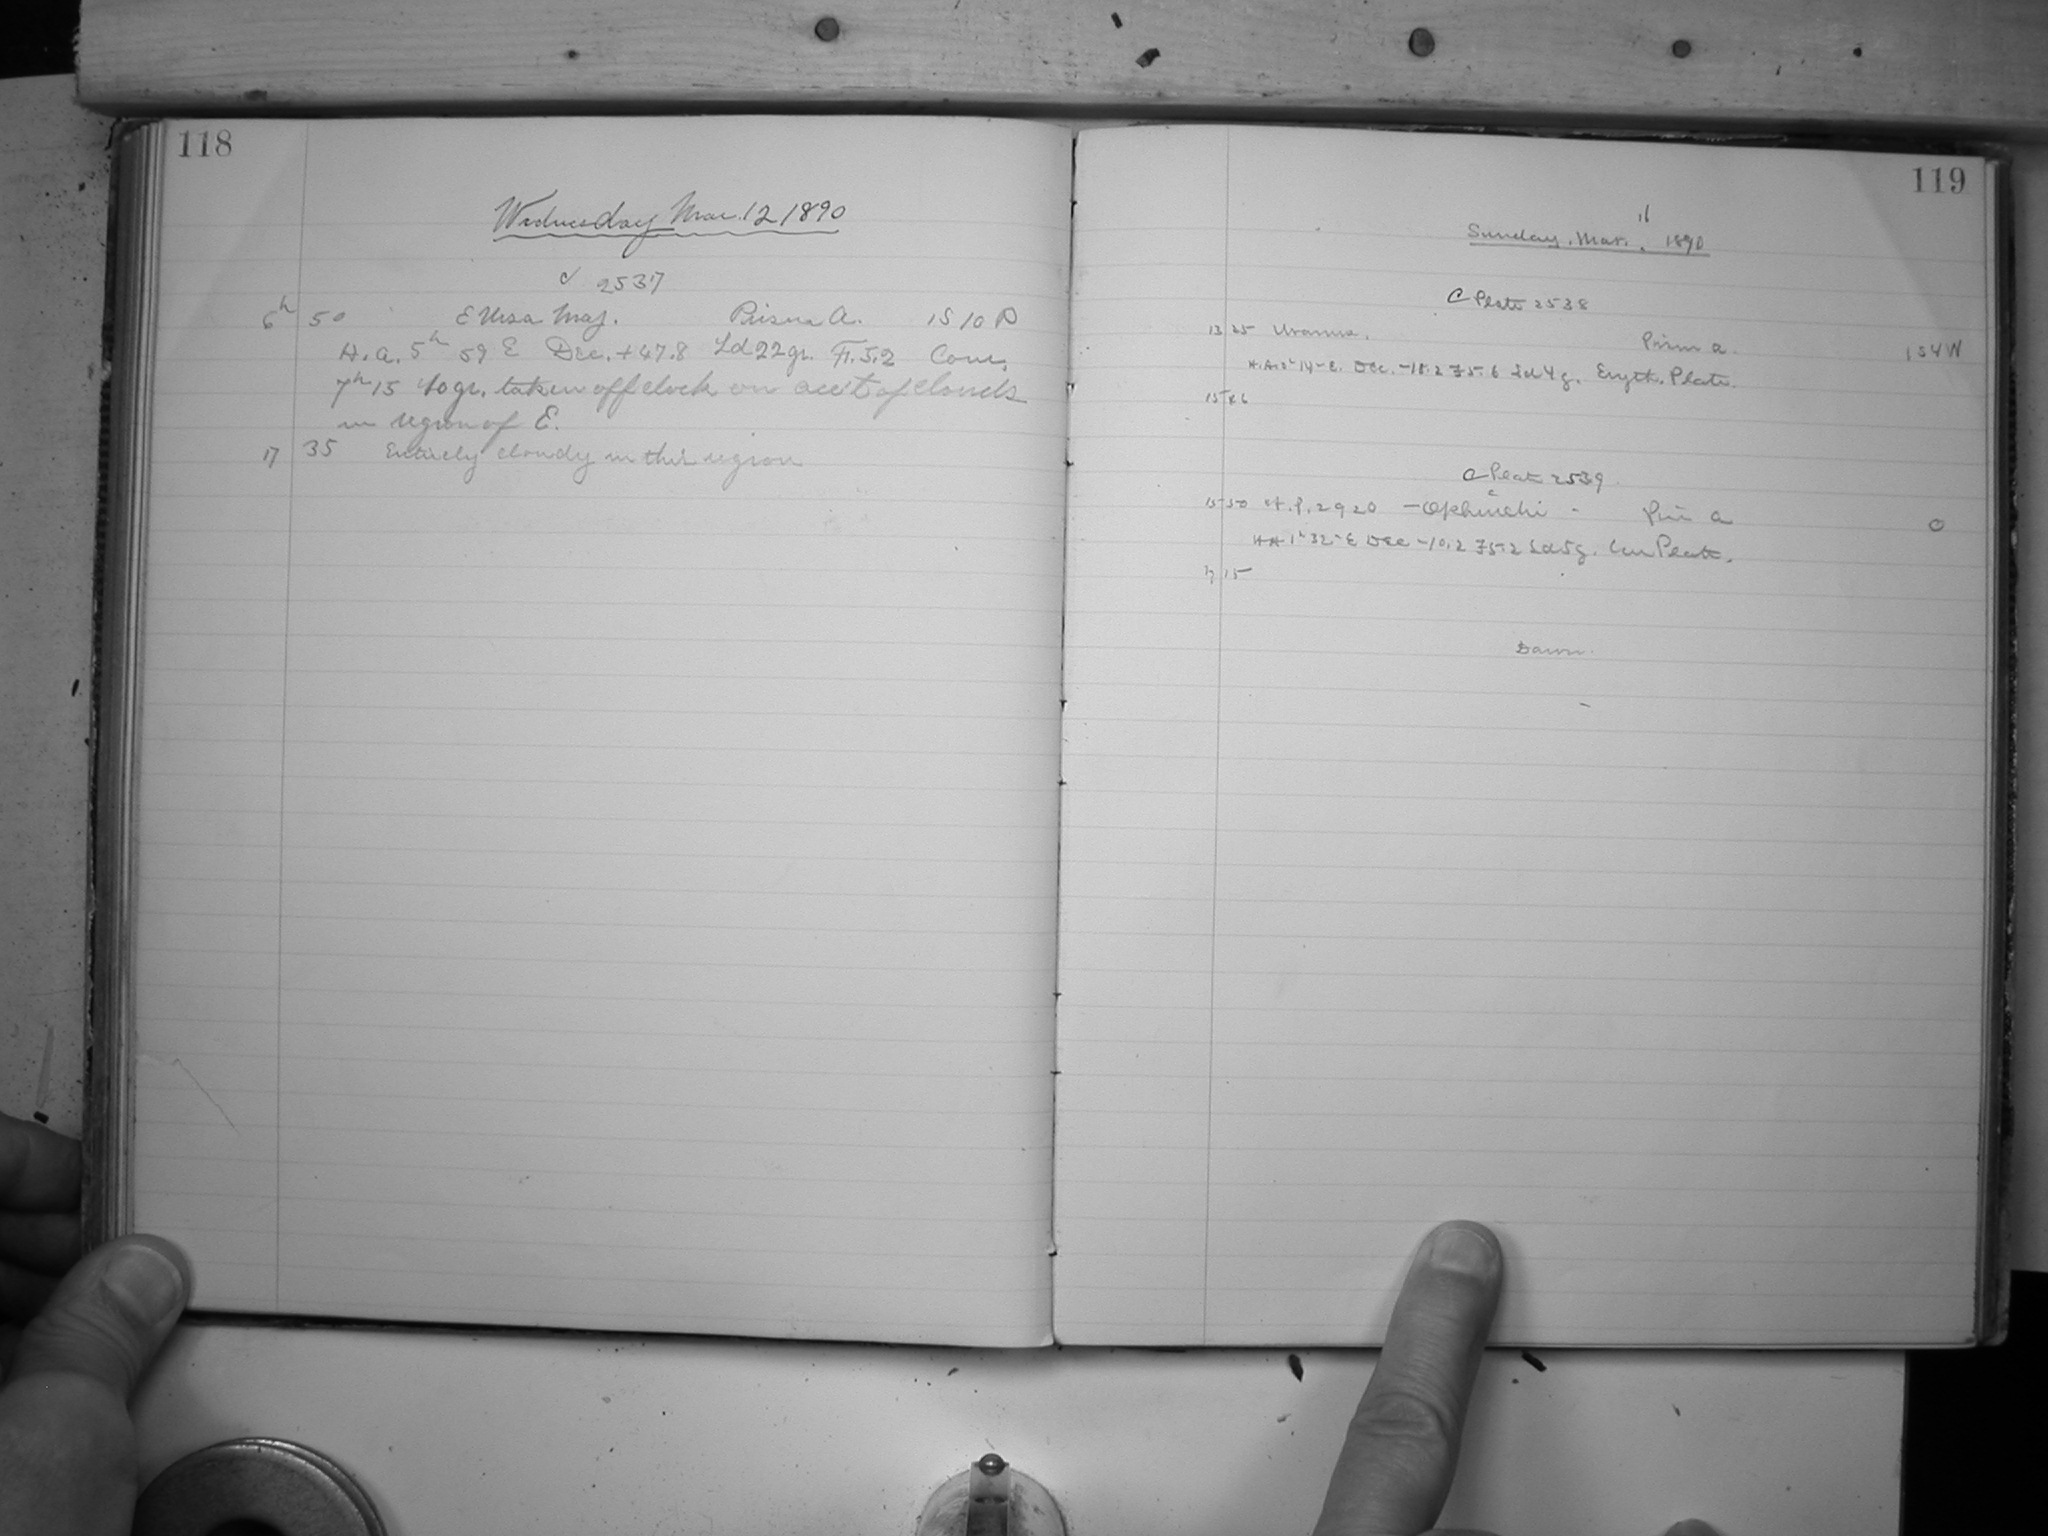 118
Wednesday Mar. 12 1890
C 2537
6h 50 E Ursa Maj. Prism A. 1S 10 P
H.A. 5h 59 E Dec. +47.8 Ld 22 gr. F. 5.2 Com.
7h 15 40 gr. taken off clock on acc't of clouds
in region of E.
17 35 Entirely cloudy in this region
119
Sunday, Mar. 16 1890
C Plate 2538
13 25 Uranus. Prism a. 1 S 4 W
H.A. 14 E. Dec. -18.2 F5.6 Ld 4g. Eryth. Plate.
15 46
C Plate 2539
15 50 H.P. 2920 - Ophiuchi - Prism a 0
HA 1h 32 E Dec -10.2 F5.2 Ld 5g. Com Plate.
17 15
Dawn.